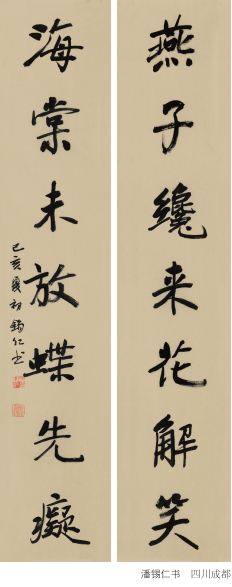 燕子纔来花解笑
海棠未放蝶先癡
己亥夏初錫仁书
潘锡仁书 四川成都